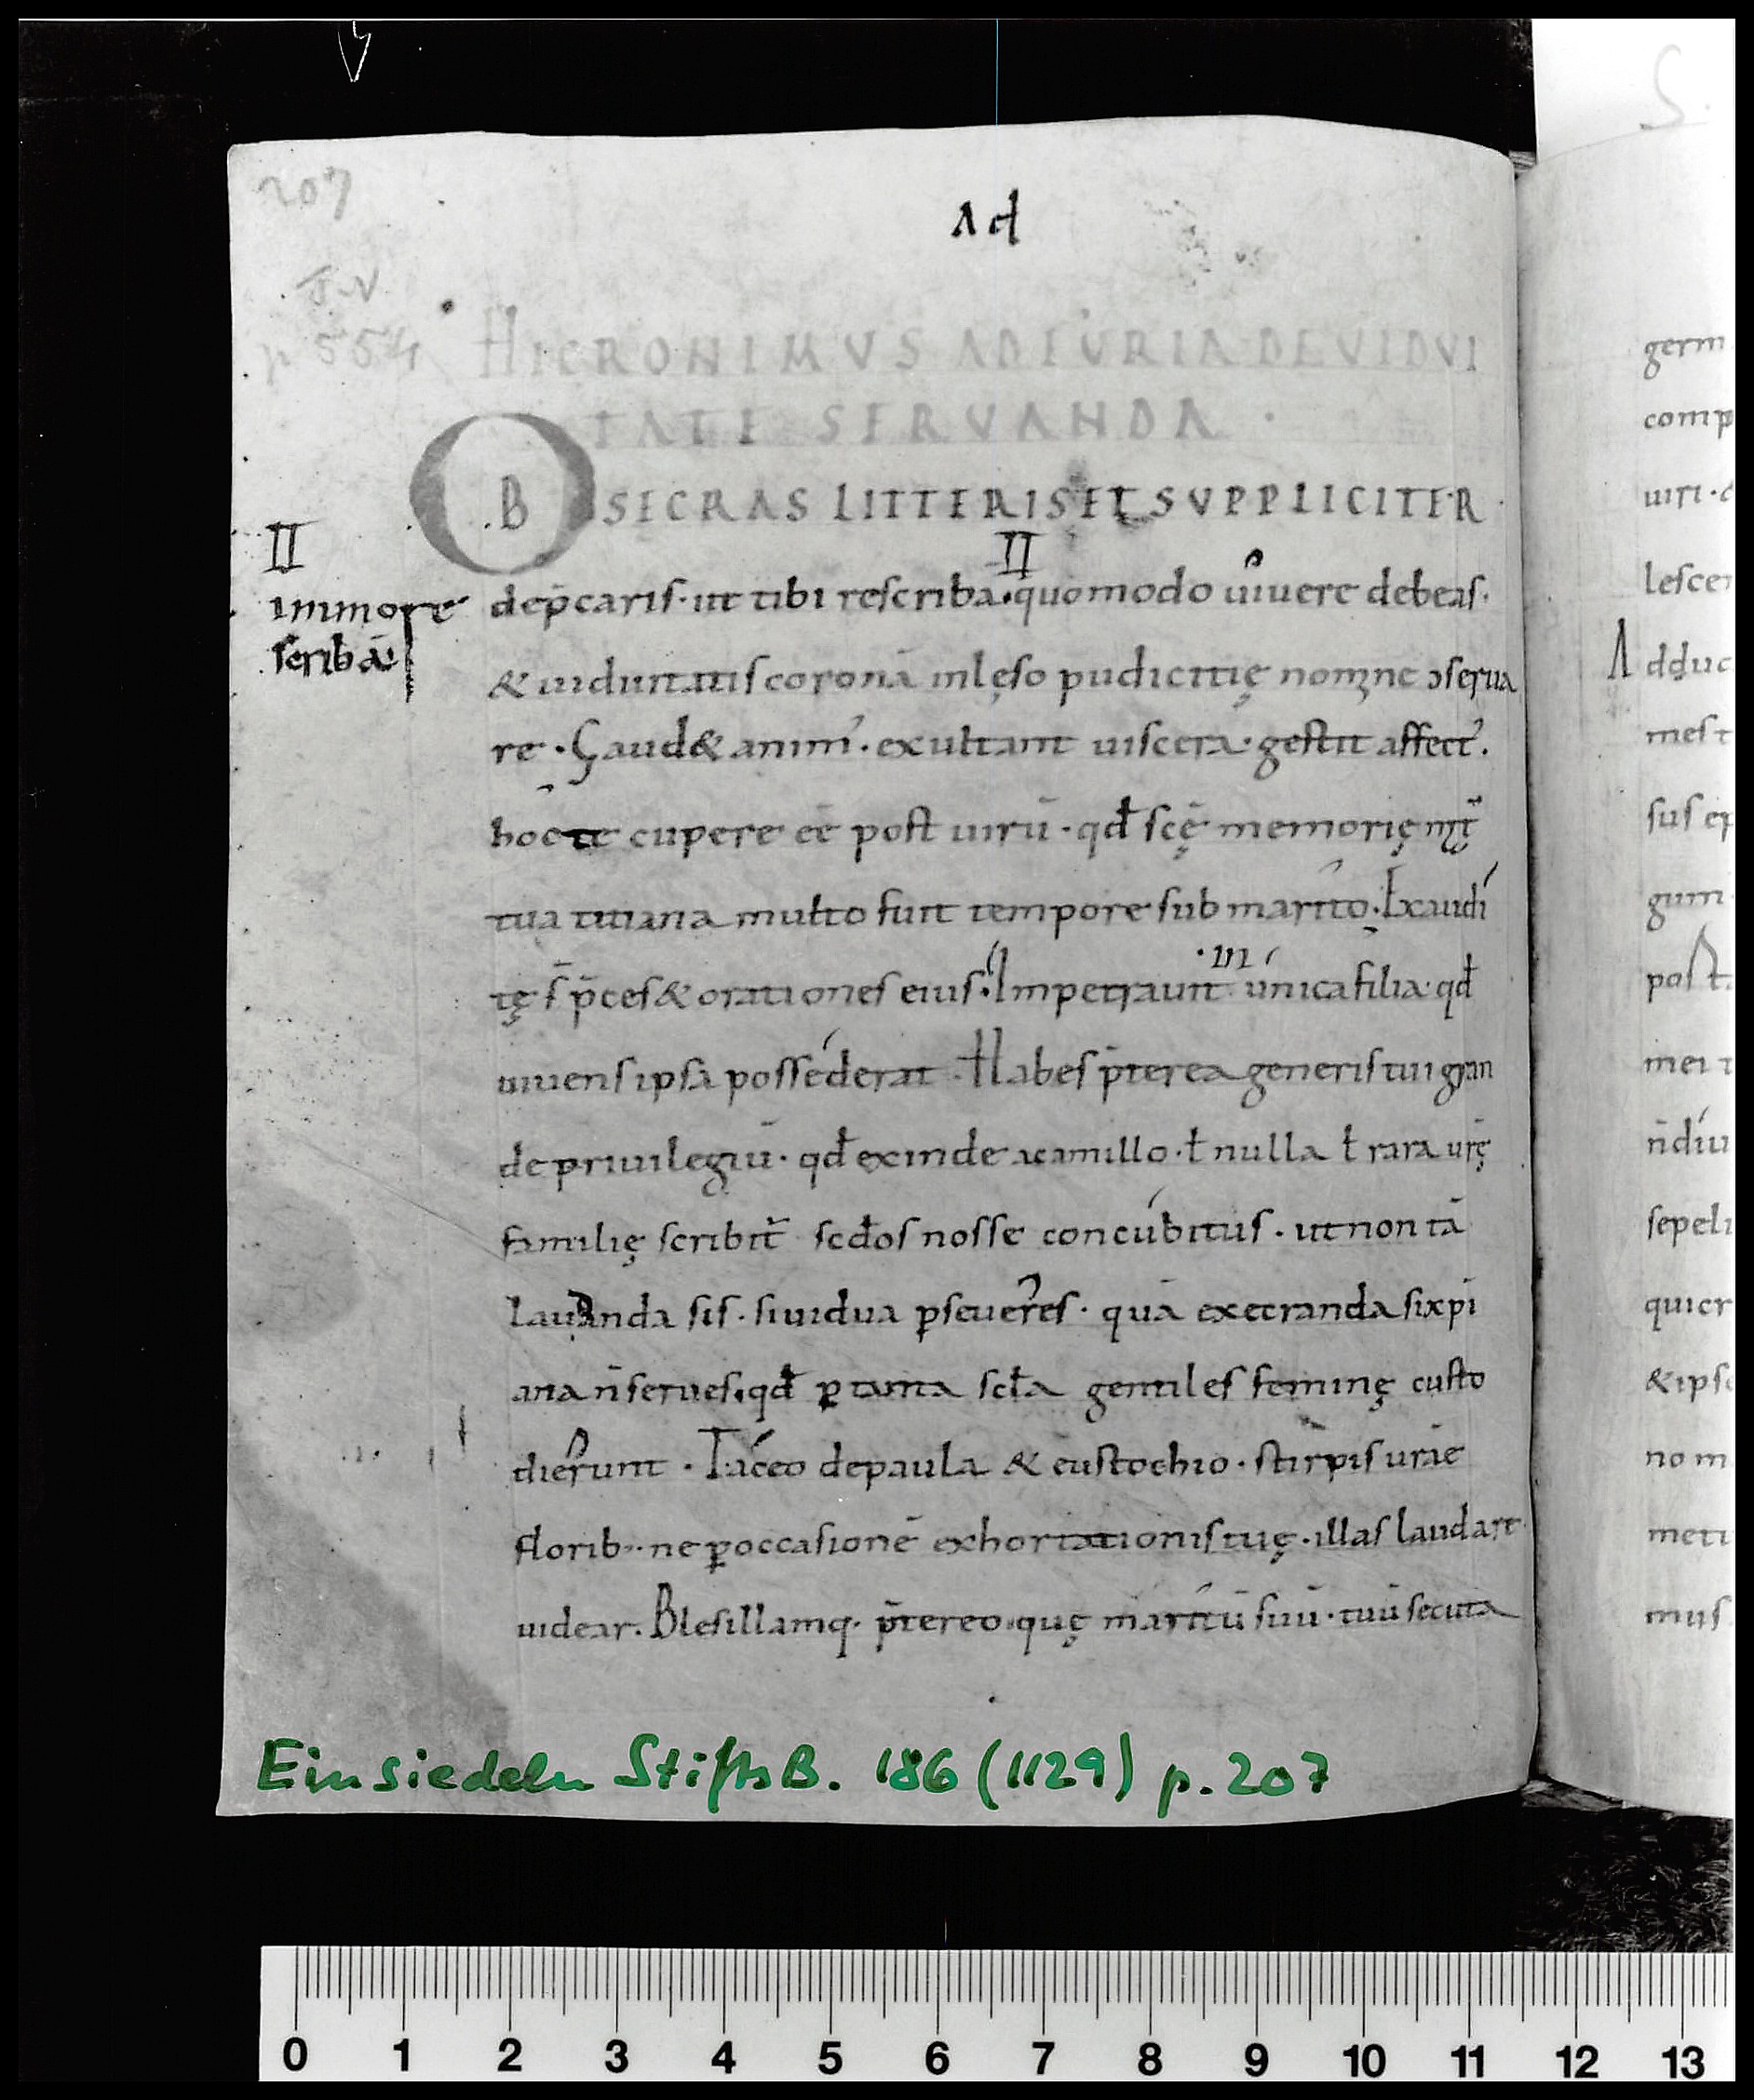 207
Ad
p 554
HIERONIMUS AD FURIA DE VIDVI
TATE SERVANDA ·
OBSECRAS LITTERIS ET SVPPLICITER
II
II
immo re
scribā
dep̄caris· ut tibi rescribā· quomodo uiuere debeas·
& uiduitatis coronā inlęso pudicitię nomine ɔserua
re · Gaud& anim᾽· exultant uiscera· gestit affect᾽.
hoc te cupere eē post uirū · qđ scę̄ memorię mr̄
tua titiana multo fuit tempore sub marito. Exaudi
tę s̄ p̄ces & orationes eius. Impetrauit · in unica filia· qđ
uiuens ipsa possederat · Habes p̄terea generis tui gran
de priuilegiū· qđ exinde a camillo · ł nulla ł rara urę̄
familię scribit᾽ scđos nosse concubitus · ut non tā
lauđanda sis · si uidua ꝑseueres · quā execranda si xpi
ana n̄ serues, qđ ꝑ tanta scła gentiles feminę custo
dierunt · Taceo de paula & eustochio · stirpis uraē
florib·· ne ꝑ occasionē exhortationis tuę · illas laudare
uidear. Blesillamq· p̄tereo quę maritū suū · tuū secuta
germ
comp
uiri · c
lescer
Adduc
mes t
sus ep
gum
post
mei t
n̄ diu
sepeli
quicr
& ipse
no m
metu
mus
Einsiedeln StiftsB. 186 (1129) p. 207
0 1 2 3 4 5 6 7 8 9 10 11 12 13